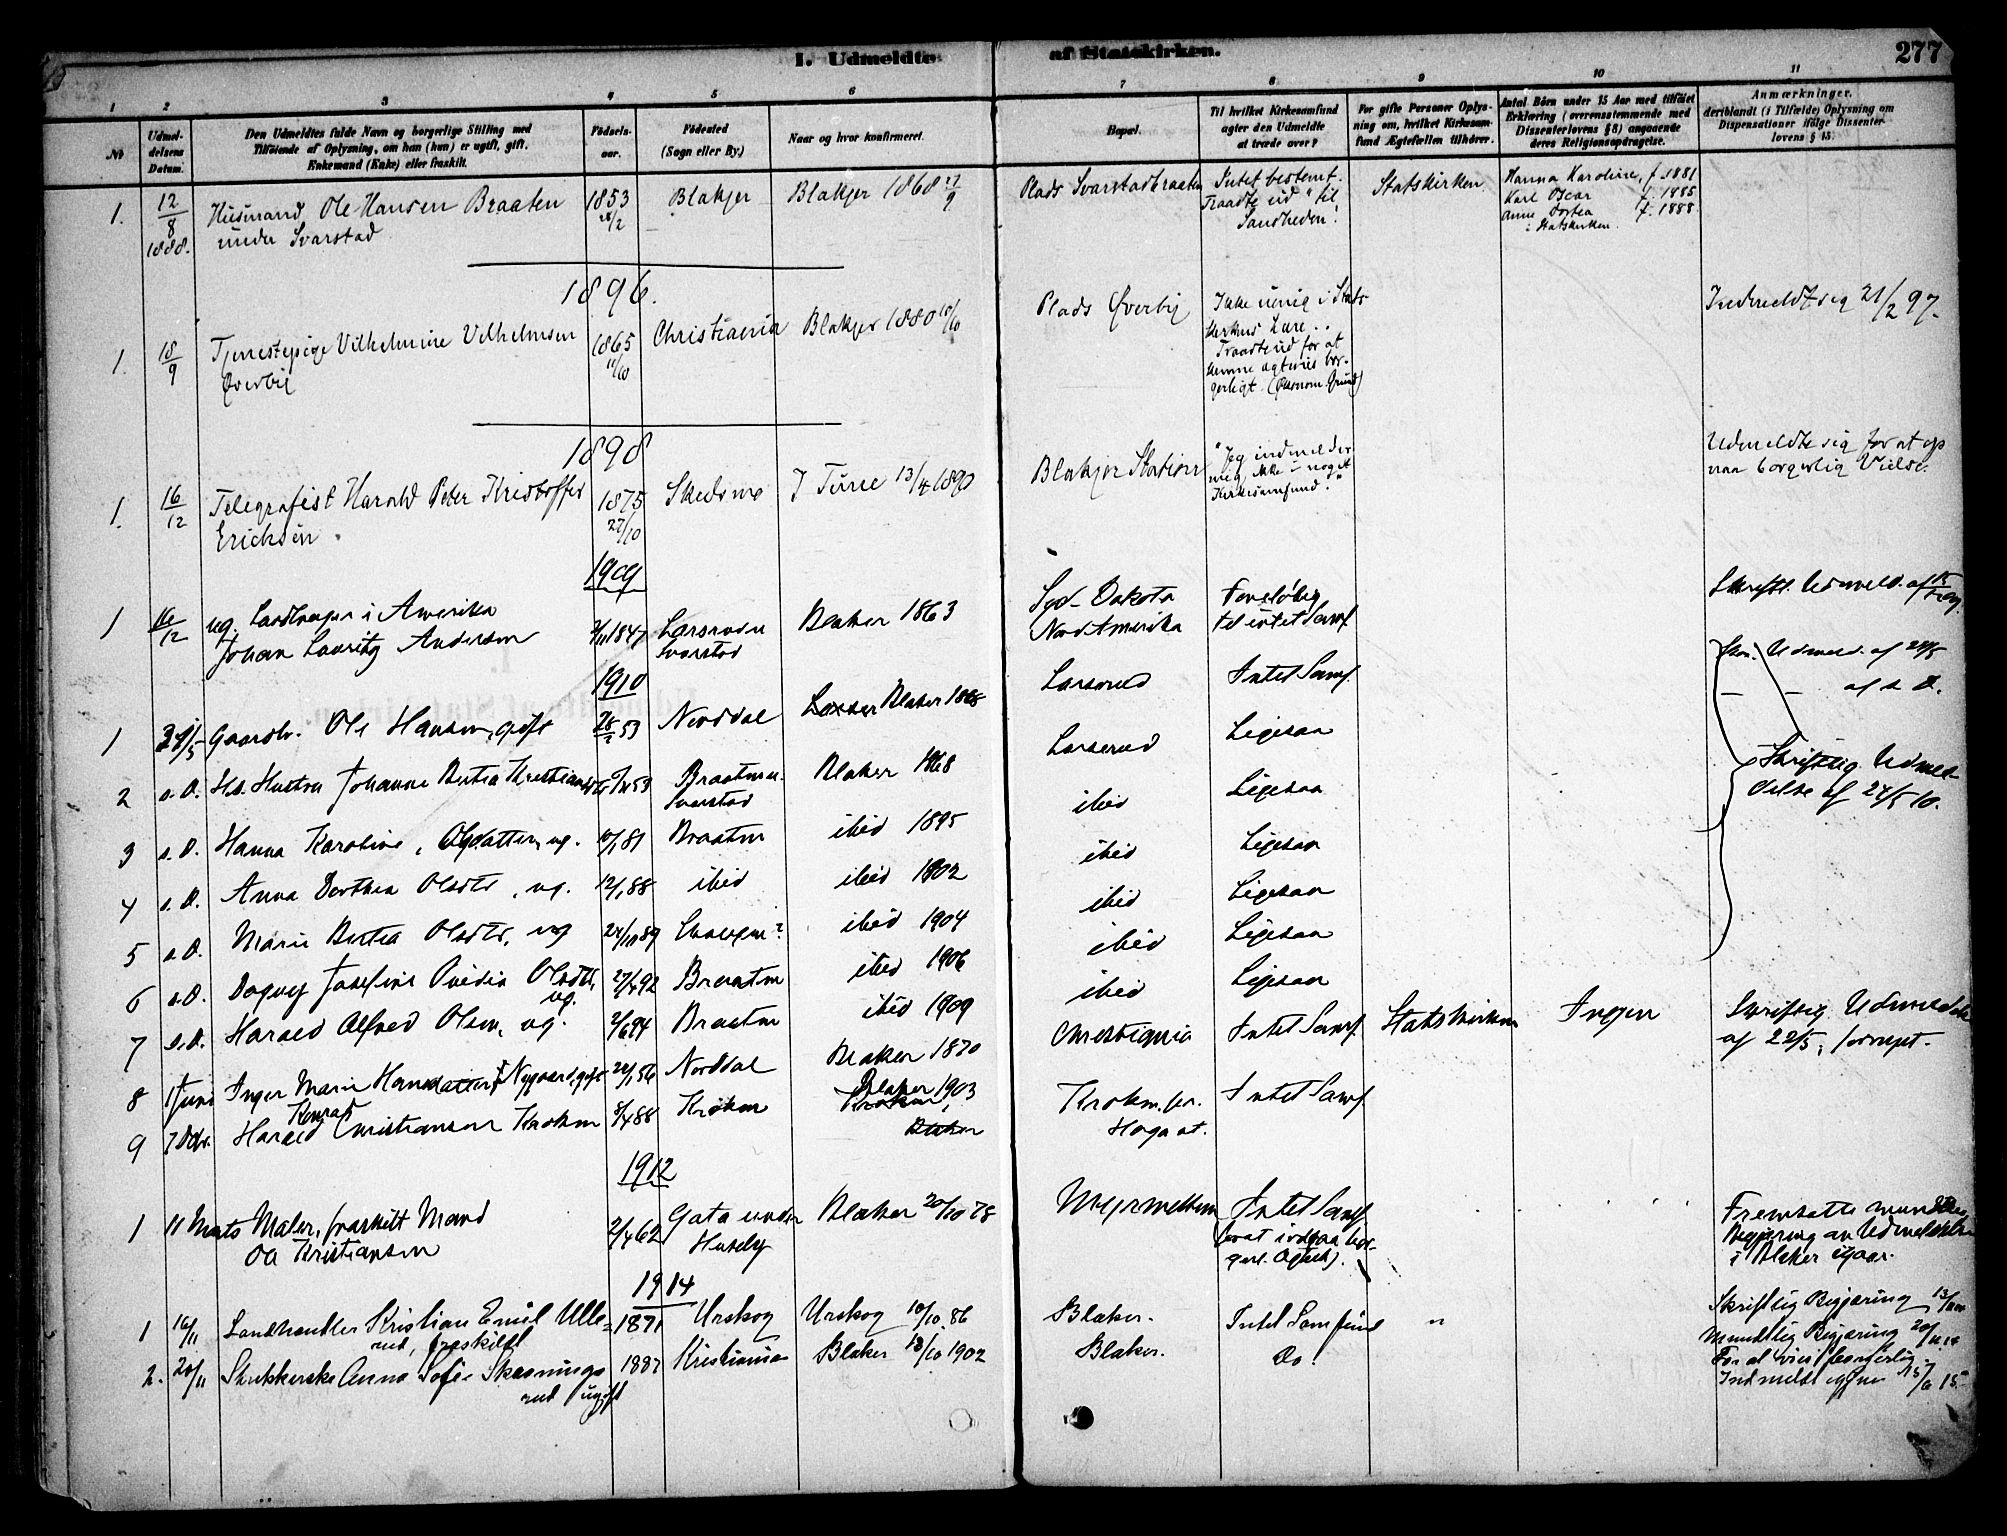 I. Udmeldte af Statskirken.
277
1 2 3 4 5 6 7 8 9 10 11
No
Udmeldelsens Datum.
Den Udmeldtes fulde Navn og borgerlige Stilling med Tilføiende af Oplysning, om han (hun) er ugift, gift, Enkemand (Enke) eller fraskilt.
Fødselsaar.
Fødested (Sogn eller By.)
Naar og hvor konfirmeret.
Bopæl.
Til hvilket Kirkesamfund agter den Udmeldte at træde over?
For gifte Personer Oplysning om, hvilket Kirkesamfund Ægtefællen tilhører.
Antal Børn under 15 Aar med tilføiet Erklæring (overensstemmende med Dissenterlovens § 8) angaaende deres Religionsopdragelse.
Anmærkninger, deriblandt (i Tilfælde) Oplysning om Dispensationer ifølge Dissenterlovens § 15.
1. 12/8 1888. Husmand Ole Hansen Braaten under Svarstad 1853 28/2 Blakjer Blakjer 1868 27/9 Plads Svarstadbraaten Intet bestemt. Traadte ud "til Sandheden". Statskirken Hanna Karoline, f. 1881 Karl Oscar f. 1885 Anne Dortea f. 1888 i Statskirken.
1896.
1. 18/9 Tjenestepige Vilhelmine Vilhelmsen Øverbye 1865 11/10 Christiania Blakjer 1880 10/10 Plads Øverby Ikke uenig i Statskirkens Lære. Traadte ud for at kunne ægtevies borgerligt. (Økonom. Grund) Indmeldt sig 21/2 97.
1898
1. 16/12 Telegrafist Harald Peter Kristoffer Erichsen. 1875 27/10 Skedsmo I Tune 13/4 1890 Blakjer Station "Jeg indmelder mig ikke i noget Kirkesamfund." Udmeldte sig for at opnaa borgerlig Vielse.
1909
1 16/12 ug. Landbruger i Amerika Johan Lauritz Andersen 1847 Larserudn Svarstad Blaker 1863 Syd-Dakota Nord Amerika Foreløbig til intet Samf. Skriftl. Udmeld. af
1910
1 Gaardbr. Ole Hansen, gift 28/2 53 Norddal Blaker 1868 Larserud Intet Samf. Udmeld. af 24/5
2 s.D. Hs. Hustru Johanne Bertea Kristiansdtr 53 Braaten Svarstad Blaker 1868 Larserud Ligesaa af s. D.
3 s.D. Hanna Karoline, Olsdatter, ug. 10/1 81 Braaten ibid 1895 ibid Ligesaa Skriftlig Udmeldelse af 24/5 10.
4 s.D. Anna Dorthea Olsdtr, ug. 12/1 88 ibid ibid 1902 ibid Ligesaa
5 s.D. Marie Bertea Olsdtr, ug 24/10 89 ibid 1904 ibid Ligesaa
6 s.D. Dagny Josefine Ovidia Olsdtr, ug. 27/4 92 Braaten ibid 1906 ibid Ligesaa
7 s.D. Harald Alfred Olsen, ug. 2/6 94 Braaten ibid 1909 ibid Ligesaa
8 1 Juni Inger Marie Hansdatter Nygaard, gift 22/1 56 Norddal Blaker 1870 Christiania Intet Samf. Statskirken Ingen Skriftlig Udmeldelse af 22/5,
9 7 Dcbr. Harald Konrad Christiansen Kroken 8/4 88 Kroken Blaker 1903 Kroken pr. Haga st. Intet Samf.
1912
1 11 Marts Maler, fraskilt Mand Ole Kristiansen 2/4 62 Gata under Huseby Blaker 20/10 78 Intet Samf. (for at indgaa borgerl. Ægtesk). Fremsatte mundtlig Begjæring om Udmeldelse i Blaker igaar.
1914
1 16/11 Landhandler Kristian Emil Ullerud, fraskilt 1871 Urskog Urskog 10/10 86 Blaker. Intet Samfund " Skriftlig Begjæring
2. 20/11 Anna Sofie Skanningsrud ugift 1887 Kristiania Blaker 12/10 1902 Blaker. Do. Mundtlig Begjæring 20/11 14 For at vies borgerlig. Indmeldt igjen